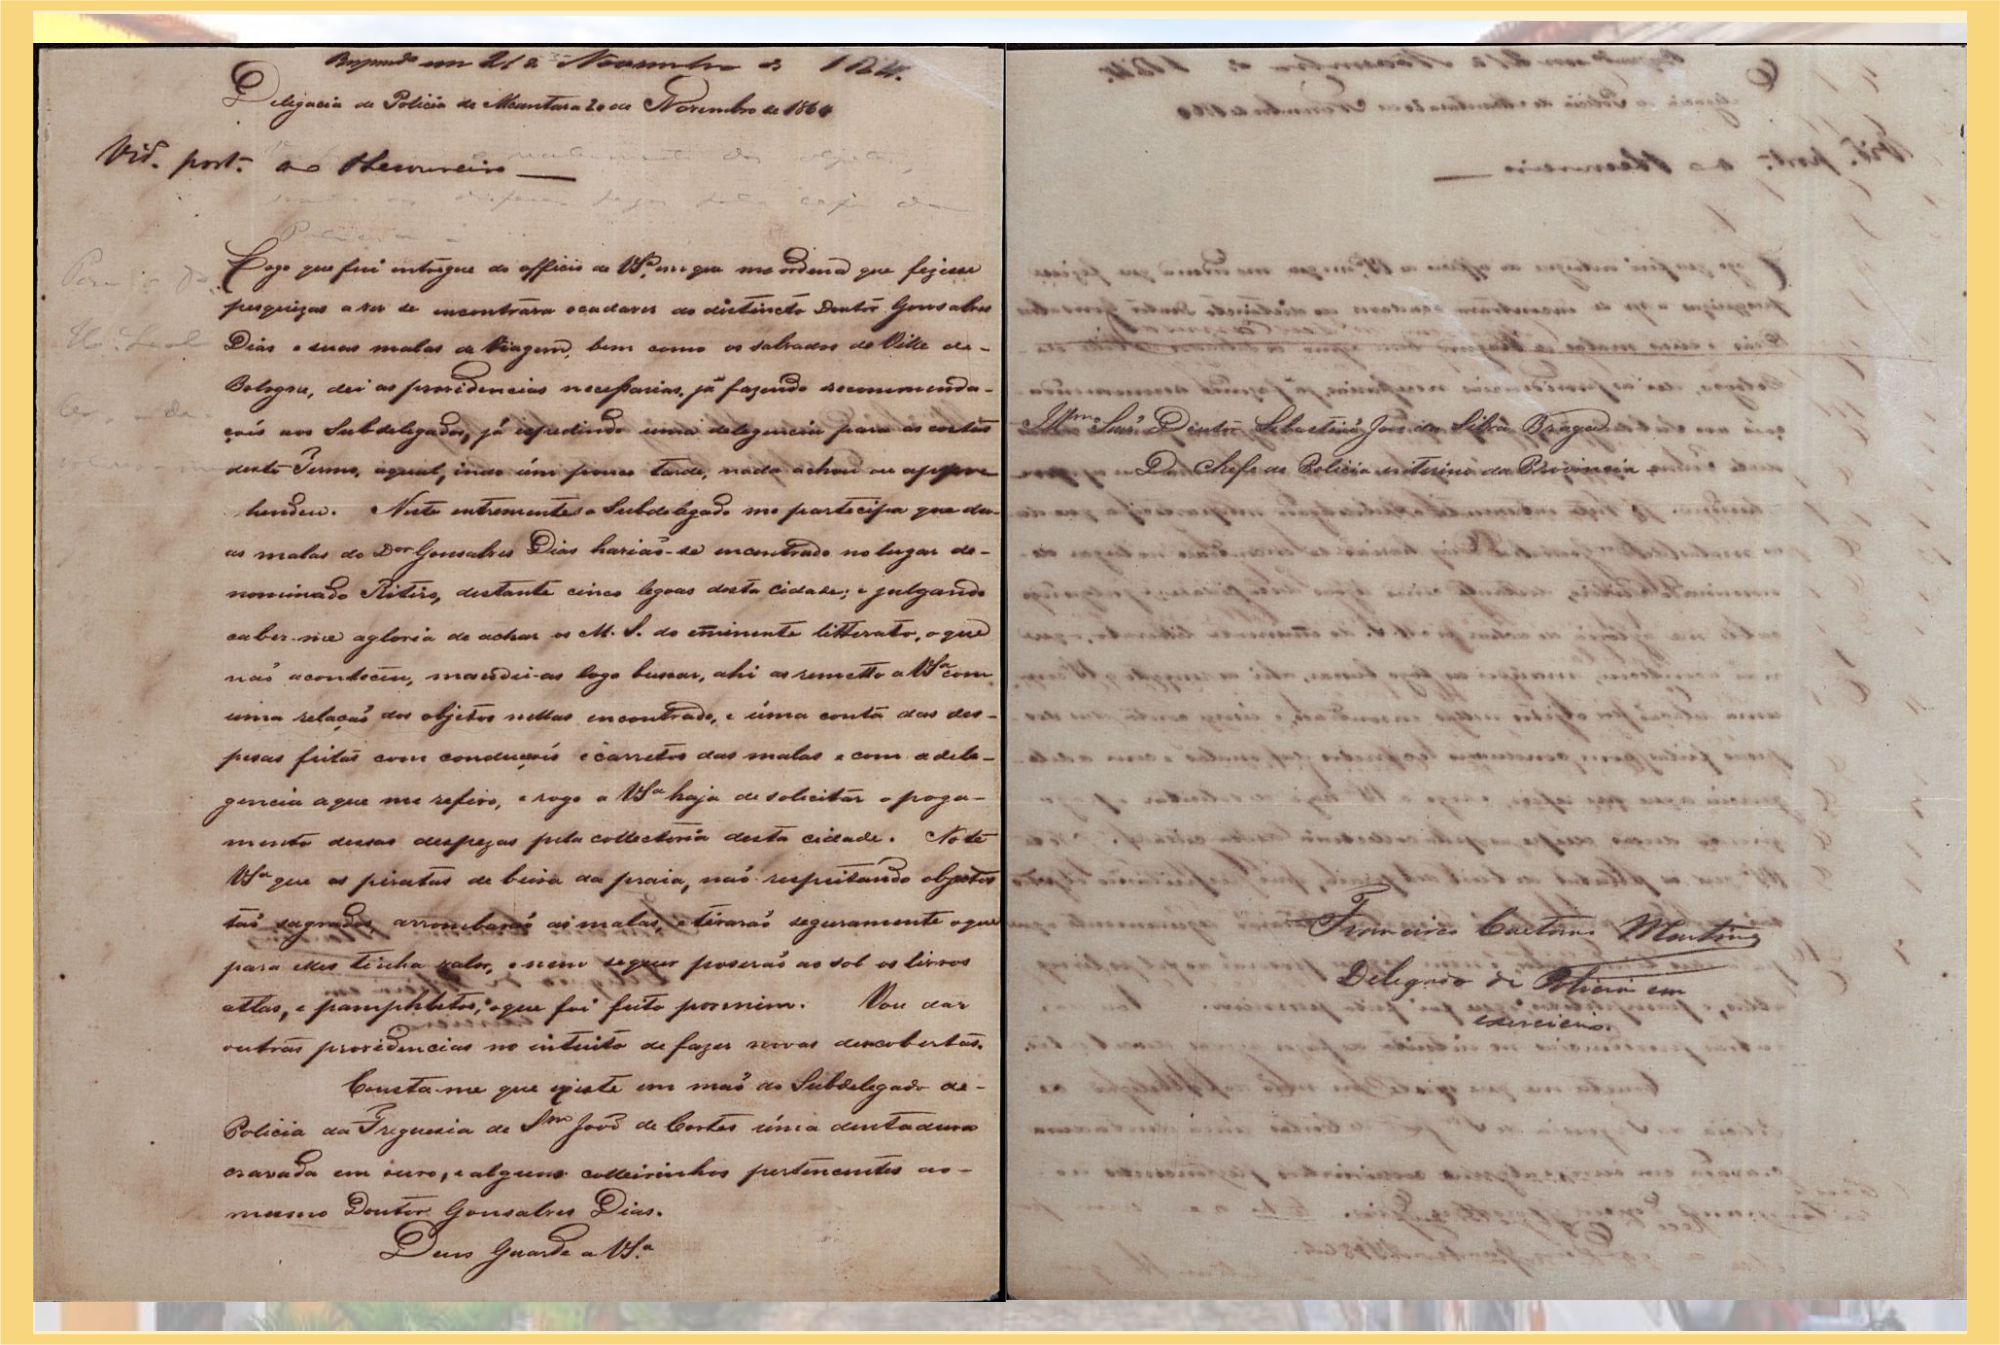 em 21 de Novembro de 1864.
Delegacia de Policia de Alcantara 20 de Novembro de 1864
Vid. port. ao Thesoureiro
Logo que fui entregue do officio de VSª em que me ordena que fizesse
pesquizas a ver se encontrara ocadaver do distincto Doutor Gonsalves
Dias e suas malas de Viagem, bem como os salvados do Ville de-
Bologna, dei as providencias necessarias, já fazendo recommenda-
çois aos Subdelegados, já expedindo uma deligencia para as costas
deste Termo, aqual, indo úm pouco tarde, nada achou ou appre
hendeu. Neste entremente o Subdelegado me participa que du-
as malas do Dor Gonsalves Dias haviaõ-se encontrado no lugar de-
nominado Ritiro, distante cinco legoas desta Cidade; e julgando
caber-me agloria de achar os M. S. do eminente litterato, oque
naõ acontecêu, mandei-as logo buscar, ahi as remetto a VSª com
uma relaçaõ dos objetos nellas encontrado, e úma conta das des-
pesas feitas com conducçois e carretos das malas e com a dele-
gencia aque me refiro, e rogo a VSª haja de solicitár o paga-
mento dessas despezas pela collectoria desta cidade. Note
VSª que os piratas de beira da praia, naõ respeitando objétos
taõ sagrados, arrombaraõ as malas, e tiraraõ seguramente oque
para elles tinha valor, e nem sequer poseraõ ao sol os livros
atlas, e pamphletos, oque foi feito pormim. Vou dar
outras providencias no intuito de fazer novas descobertas.
Consta-me que existe em maõ do Subdelegado de-
Policia da Freguezia de Sm Joaõ de Cortes úma dentadura
cravada em ouro, e alguns colleirinhos pertencentes ao-
mesmo Doutor Gonsalves Dias.
Deus Guarde a VSª
Illmo Snr. Doutor Sebastiaõ José da Silva Braga
D. Chefe de Policia enterino da Provincia
Francisco Caetano Martins
Delegado de Policia em
exercicio.